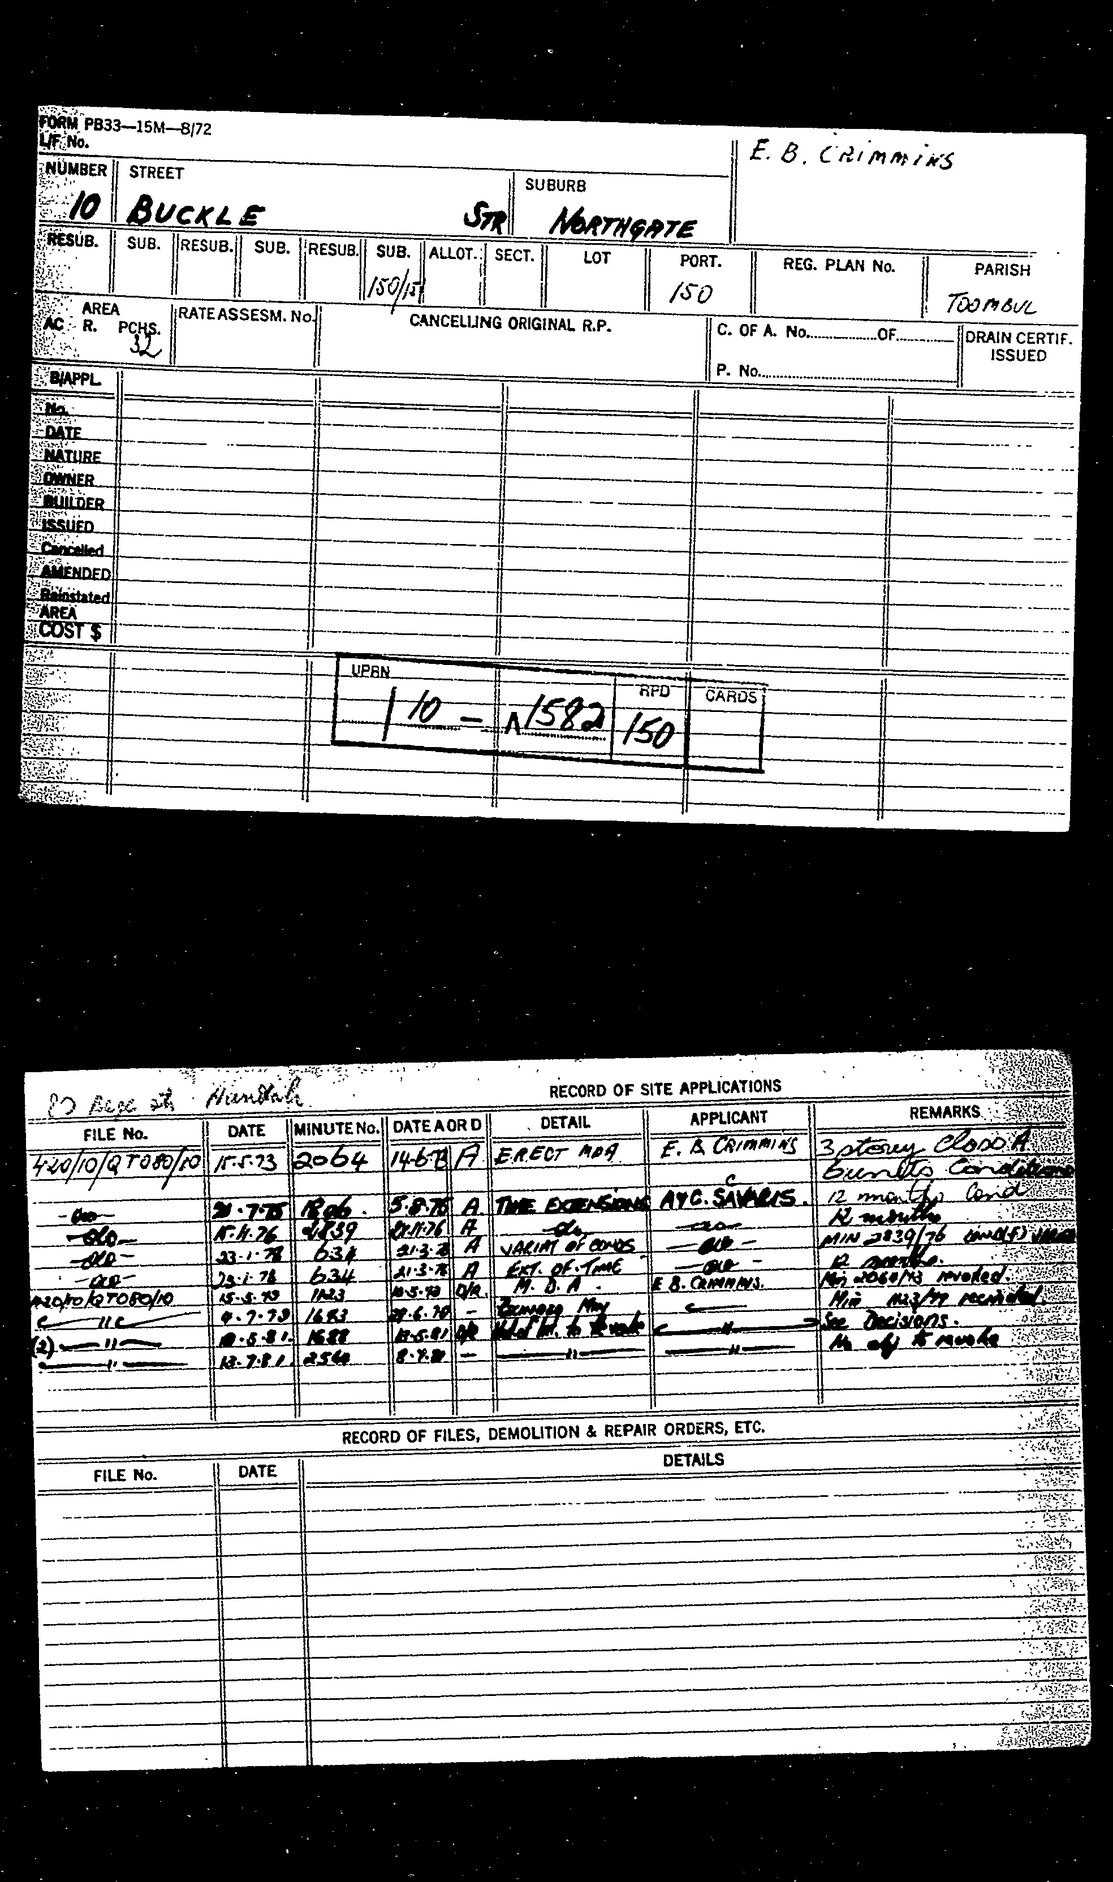 FORM PB33—15M—8/72
L/F. No.
E. B. CRIMMINS
NUMBER STREET SUBURB
10 BUCKLE STR NORTHGATE
RESUB. SUB. RESUB. SUB. RESUB. SUB. ALLOT. SECT. LOT PORT. REG. PLAN No. PARISH
150/15 150 TOOMBUL
AREA RATE ASSESM. No. CANCELLING ORIGINAL R.P. C. OF A. No. OF DRAIN CERTIF.
AC R. PCHS. ISSUED
32 P. No.
B/APPL.
No.
DATE
NATURE
OWNER
BUILDER
ISSUED
Cancelled
AMENDED
Reinstated
AREA
COST $
UPRN RPD CARDS
10 – 1582 150
Nundah RECORD OF SITE APPLICATIONS
FILE No. DATE MINUTE No. DATE A OR D DETAIL APPLICANT REMARKS
420/10/QT080/10 15.5.73 2064 14.6.73 A ERECT MDA E. B CRIMMINS 3 storey Class A
Conditions
-do- 5.8.75 A TIME EXTENSIONS A & C. SAVARIS. 12 months Cond
-do- 15.11.76 2839 A -do- -do- 12 months
-do- 23.1.78 634 21.3.78 A VARIAT OF CONDS -do- MIN 2839/76
-do- 23.1.78 634 21.3.78 A EXT. OF TIME -do- 12 months.
420/10/QT080/10 15.5.79 1123 M.D.A. E B. CRIMMINS. Min 2064/73 revoked.
" 9.7.79 1683 – " Min 1123/79 rescinded.
(2) " 1688 " See Decisions.
" 13.7.81 2560 – " " No obj to revoke
RECORD OF FILES, DEMOLITION & REPAIR ORDERS, ETC.
FILE No. DATE DETAILS